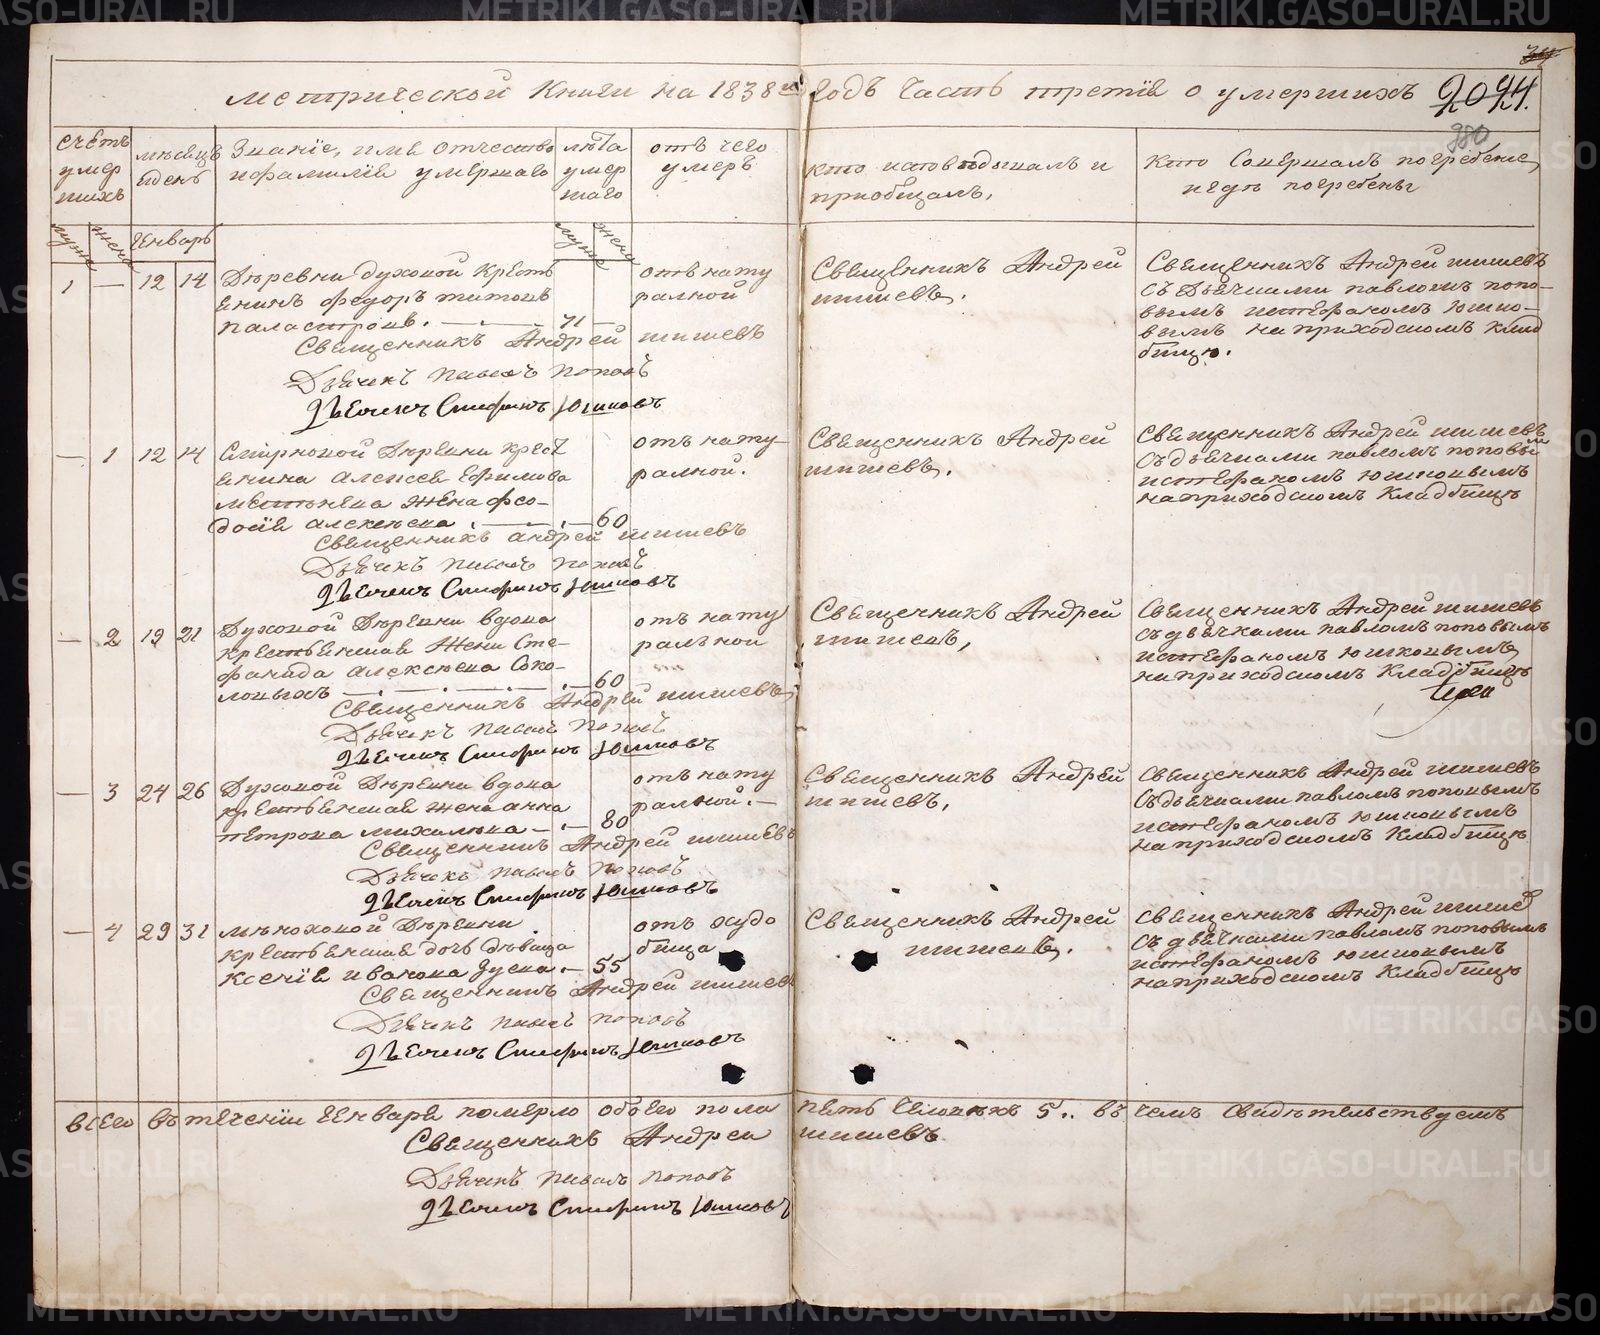 метрической Книги на 1838й годъ Часть третія о умершихъ
2094.
980
счетъ умер шихъ
мѣсяцъ и день
Званіе, имя отчество и фамилія умершаго
лѣта умер шаго
отъ чего умеръ
кто исповѣдывалъ и приобщалъ,
кто Совершалъ погребеніе, и гдѣ погребены
муж
жен
Генварь
муж
жен
1 — 12 14
Деревни духовой Кресть
янинъ федоръ титовъ
71
отъ нату
ралной
Священникъ Андрей
шишевъ.
Священникъ Андрей шишевъ
съ Дьячками павломъ попо-
вымъ и стефаномъ юшко-
вымъ на приходскомъ клад
бищѣ.
Священникъ Андрей шишевъ
Дьячекъ Павелъ Поповъ
Дьячекъ Стефанъ Юшковъ
— 1 12 14
Смирновой Деревни крест
янина алексея Ефимова
жена фео-
досія алексѣева . — . — 60
отъ нату-
ралной.
Священникъ Андрей
шишевъ.
Священникъ Андрей шишевъ
съ дьячками павломъ поповым
и стефаномъ юшковымъ
на приходскомъ Кладбищѣ
Священникъ андрей шишевъ
Дьячекъ Павелъ Поповъ
Дьячекъ Стефанъ Юшковъ
— 2 19 21
Духовой Деревни вдова
крестьянская Жена Сте-
фанида алексѣева Соко-
ловыхъ — . — . — . — 60
отъ нату
ралной
Священникъ Андрей
шишевъ,
Священникъ Андрей шишевъ
съ дьячками павломъ поповымъ
и стефаномъ юшковымъ
на приходскомъ Кладбищѣ
Священникъ Андрей шишевъ,
Дьячекъ Павелъ Поповъ
Дьячекъ Стефанъ Юшковъ
— 3 24 26
Духовой Деревни вдова
крестьянская жена анна
петрова михалева — . — 80
отъ нату
ралной. —
Священникъ Андрей
шишевъ,
Священникъ Андрей шишевъ
съ дьячками павломъ поповымъ
и стефаномъ юшковымъ
на приходскомъ Кладбищѣ
Священникъ Андрей шишевъ
Дьячекъ Павелъ Поповъ
Дьячекъ Стефанъ Юшковъ
— 4 29 31
Деревни
крестьянская дочь дѣвица
Ксенія иванова Зуева. — 55
отъ худо
бища
Священникъ Андрей
шишевъ.
Священникъ Андрей шишев
съ дьячками павломъ поповымъ
и стефаномъ юшковымъ
на приходскомъ Кладбищѣ
Священникъ Андрей шишевъ
Дьячекъ Павелъ Поповъ
Дьячекъ Стефанъ Юшковъ
всего въ теченіи Генваря померло обоего пола пять человѣкъ 5.. въ чемъ Свидѣтельствуемъ
Священникъ Андреи шишевъ
Дьячекъ Павелъ Поповъ
Дьячекъ Стефанъ Юшковъ
METRIKI.GASO-URAL.RU